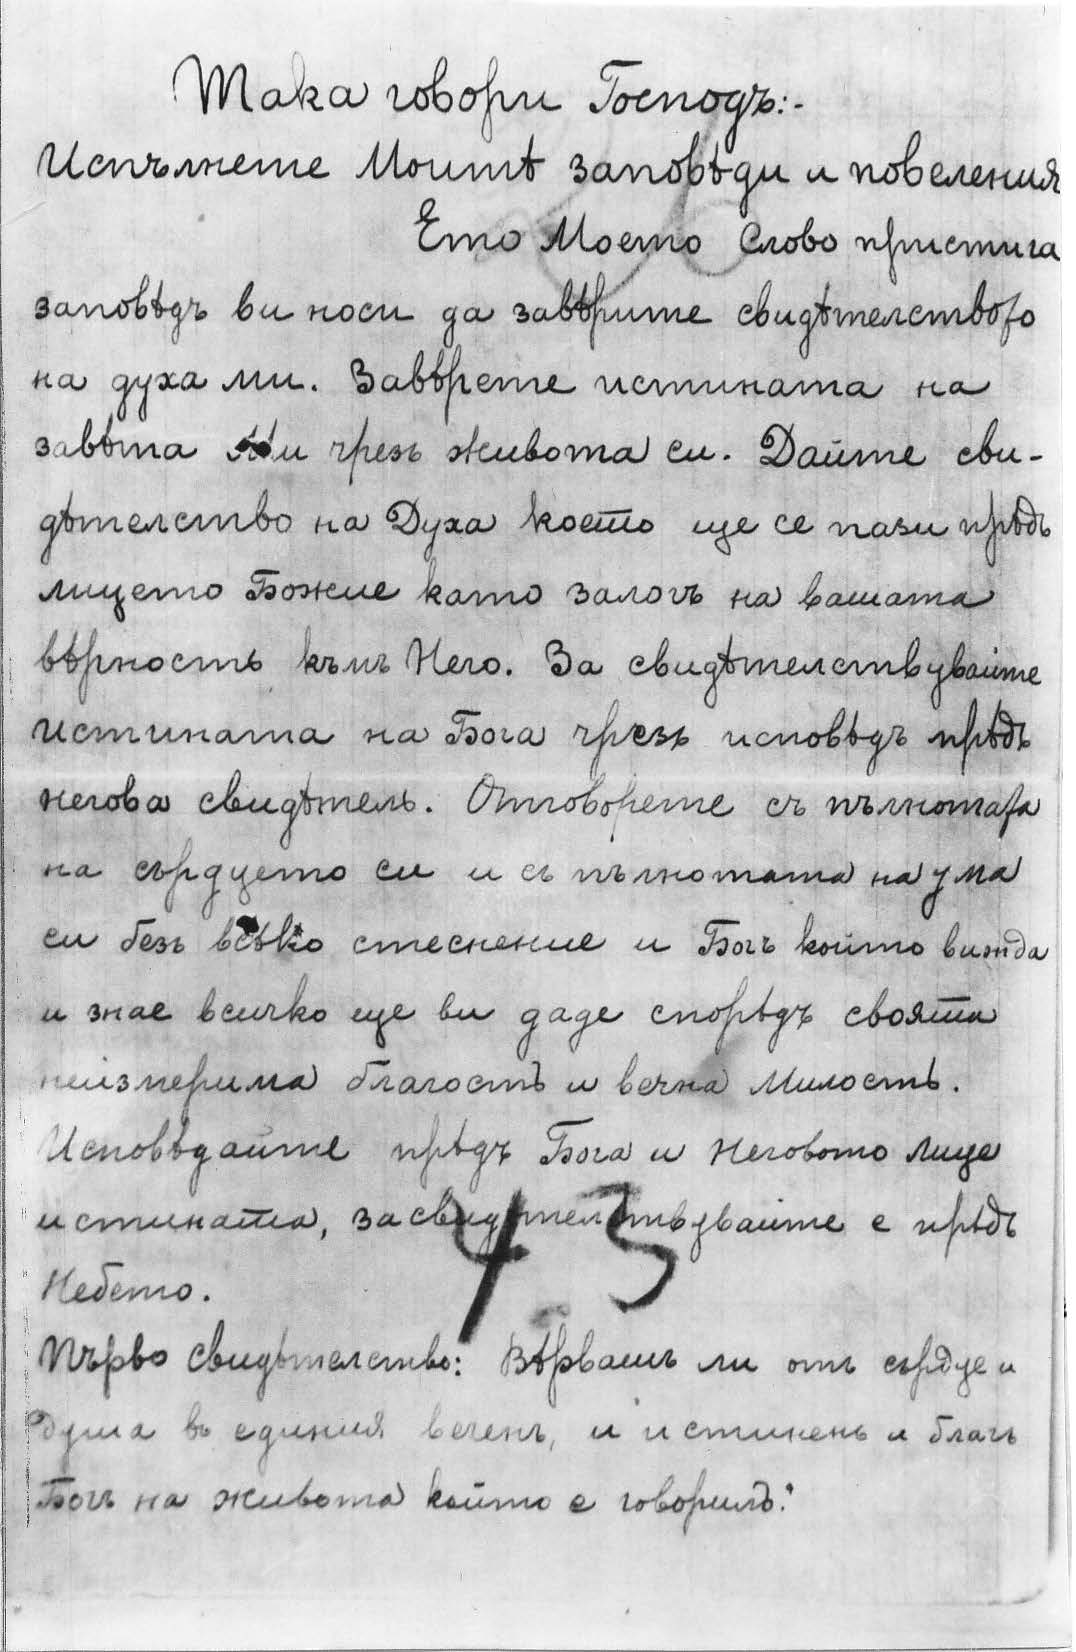 Така говори Господъ:-
Испълнете Моитѣ заповѣди и повеления
Ето Моето Слово пристига
заповѣдъ ви носи да завѣрите свидѣтелството
на духа ми. Завѣрете истината на
завѣта Ми чрезъ живота си. Дайте сви-
дѣтелство на Духа което ще се пази прѣдъ
лицето Божие като залогъ на вашата
вѣрность къмъ Него. За свидѣтелствувайте
истината на Бога чрезъ исповѣдъ прѣдъ
негова свидѣтель. Отговорете съ пълнотата
на сърдцето си и съ пълнотата на ума
си безъ всѣко стеснение и Богъ който вижда
и знае всичко ще ви даде спорѣдъ својата
неизмерима благость и вечна Милость.
Исповѣдайте прѣдъ Бога и Неговото лице
истината, засвидѣтелствувайте е прѣдъ
Небето.
43
Първо свидѣтелство: Вѣрвашъ ли отъ сърдце и
душа въ единия веченъ, и истиненъ и благъ
Богъ на живота който е говорилъ: